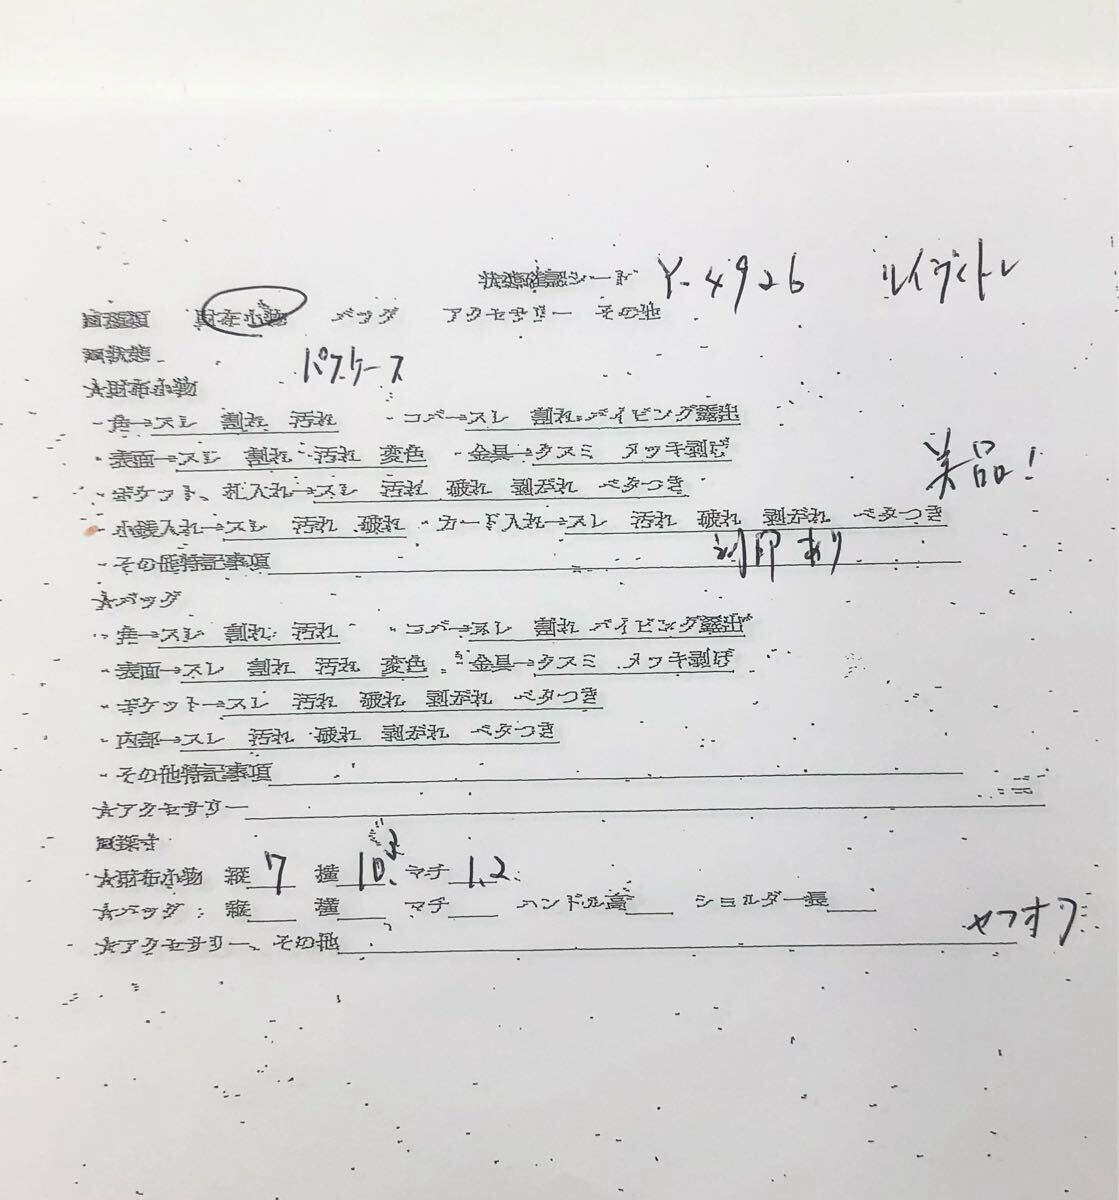 状態確認シート Y-4926 ルイヴィトン
財布小物 バッグ アクセサリー その他
□状態 パスケース
☆財布小物
・角→スレ 割れ 汚れ ・コバ→スレ 割れ パイピング露出
・表面→スレ 割れ 汚れ 変色 ・金具→クスミ メッキ剥げ
美品!
・ポケット、札入れ→スレ 汚れ 破れ 剥がれ ベタつき
・小銭入れ→スレ 汚れ 破れ ・カード入れ→スレ 汚れ 破れ 剥がれ ベタつき
・その他特記事項 刻印あり
☆バッグ
・角→スレ 割れ 汚れ ・コバ→スレ 割れ パイピング露出
・表面→スレ 割れ 汚れ 変色 ・金具→クスミ メッキ剥げ
・ポケット→スレ 汚れ 破れ 剥がれ ベタつき
・内部→スレ 汚れ 破れ 剥がれ ベタつき
・その他特記事項
☆アクセサリー
□採寸
☆財布小物 縦 7 横 10.2 マチ 1.2
☆バッグ:縦 横 マチ ハンドル高 ショルダー長
☆アクセサリー、その他 ヤフオク